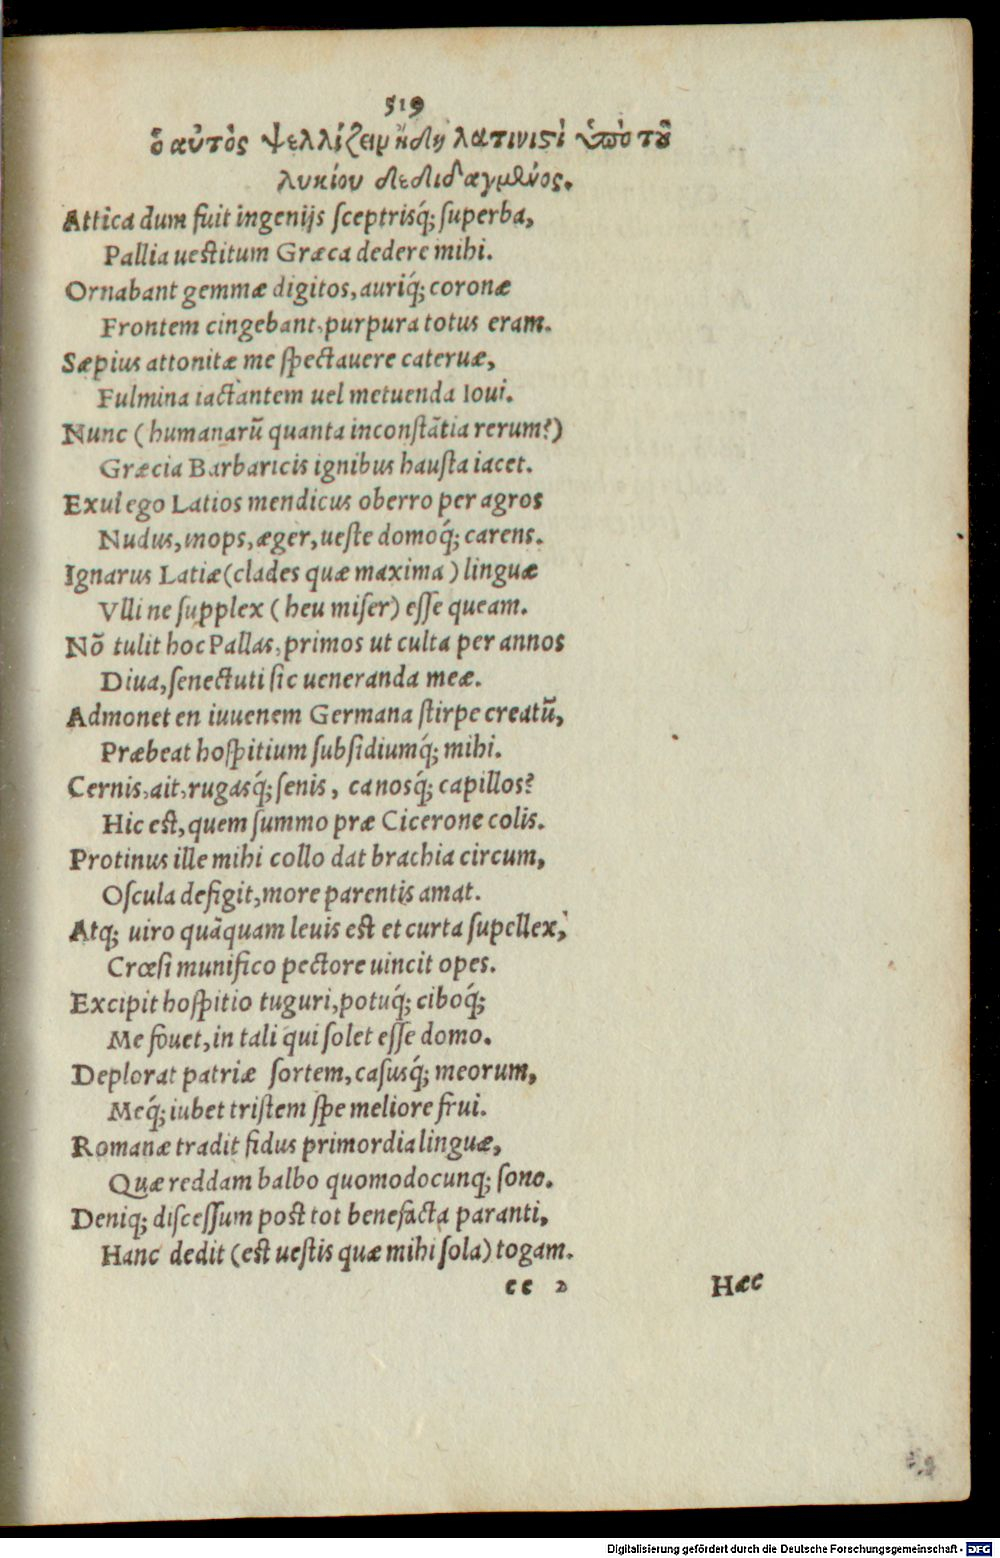 519
ὁ αὐτὸς ψελλίζειν ἤδη λατινιστὶ ὑπὸ τοῦ
λυκίου δεδιδαγμένος.
Attica dum fuit ingenijs sceptrisq́; superba,
Pallia uestitum Græca dedere mihi.
Ornabant gemmæ digitos, auriq́; coronæ
Frontem cingebant, purpura totus eram.
Sæpius attonitæ me spectauere cateruæ,
Fulmina iactantem uel metuenda Ioui.
Nunc (humanarũ quanta inconstãtia rerum?)
Græcia Barbaricis ignibus hausta iacet.
Exul ego Latios mendicus oberro per agros
Nudus, inops, æger, ueste domoq́; carens.
Ignarus Latiæ (clades quæ maxima) linguæ
Vlli ne supplex (heu miser) esse queam.
Nõ tulit hoc Pallas, primos ut culta per annos
Diua, senectuti sic ueneranda meæ.
Admonet en iuuenem Germana stirpe creatũ,
Præbeat hospitium subsidiumq́; mihi.
Cernis, ait, rugasq́; senis, canosq́; capillos?
Hic est, quem summo præ Cicerone colis.
Protinus ille mihi collo dat brachia circum,
Oscula defigit, more parentis amat.
Atq; uiro quãquam leuis est et curta supellex,
Crœsi munifico pectore uincit opes.
Excipit hospitio tuguri, potuq́; ciboq́;
Me fouet, in tali qui solet esse domo.
Deplorat patriæ sortem, casusq́; meorum,
Meq́; iubet tristem spe meliore frui.
Romanæ tradit fidus primordia linguæ,
Quæ reddam balbo quomodocunq; sono.
Deniq; discessum post tot benefacta paranti,
Hanc dedit (est uestis quæ mihi sola) togam.
cc 2 Hæc
Digitalisierung gefördert durch die Deutsche Forschungsgemeinschaft - DFG